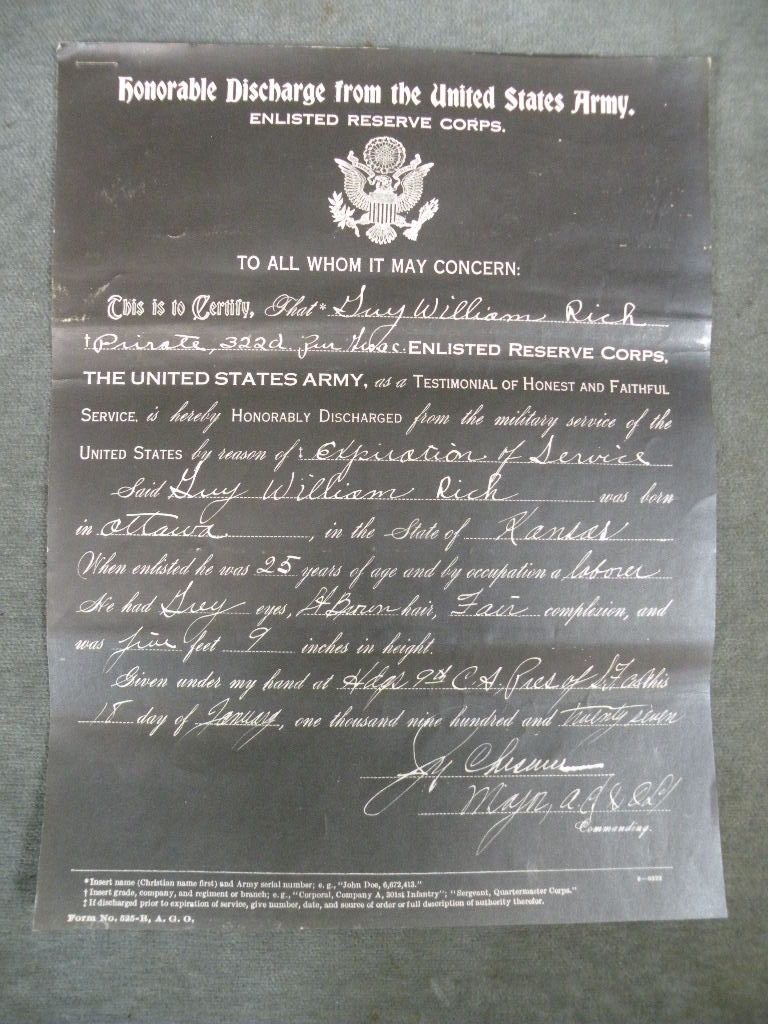 Honorable Discharge from the United States Army.
ENLISTED RESERVE CORPS.
TO ALL WHOM IT MAY CONCERN:
This is to Certify, That* Guy William Rich
†Private, 322d ENLISTED RESERVE CORPS,
THE UNITED STATES ARMY, as a TESTIMONIAL OF HONEST AND FAITHFUL
SERVICE, is hereby HONORABLY DISCHARGED from the military service of the
UNITED STATES by reason of‡ Expiration of Service
Said Guy William Rich was born
in Ottawa, in the State of Kansas
When enlisted he was 25 years of age and by occupation a laborer
He had Grey eyes, Brown hair, Fair complexion, and
was five feet 9 inches in height.
Given under my hand at Hdqs 9th C A, Pres of S F Cal this
day of January, one thousand nine hundred and twenty seven
Major, A.G.
Commanding.
*Insert name (Christian name first) and Army serial number; e. g., "John Doe, 6,672,413."
†Insert grade, company, and regiment or branch; e. g., "Corporal, Company A, 301st Infantry"; "Sergeant, Quartermaster Corps."
‡If discharged prior to expiration of service, give number, date, and source of order or full description of authority therefor.
Form No. 525-R, A. G. O.